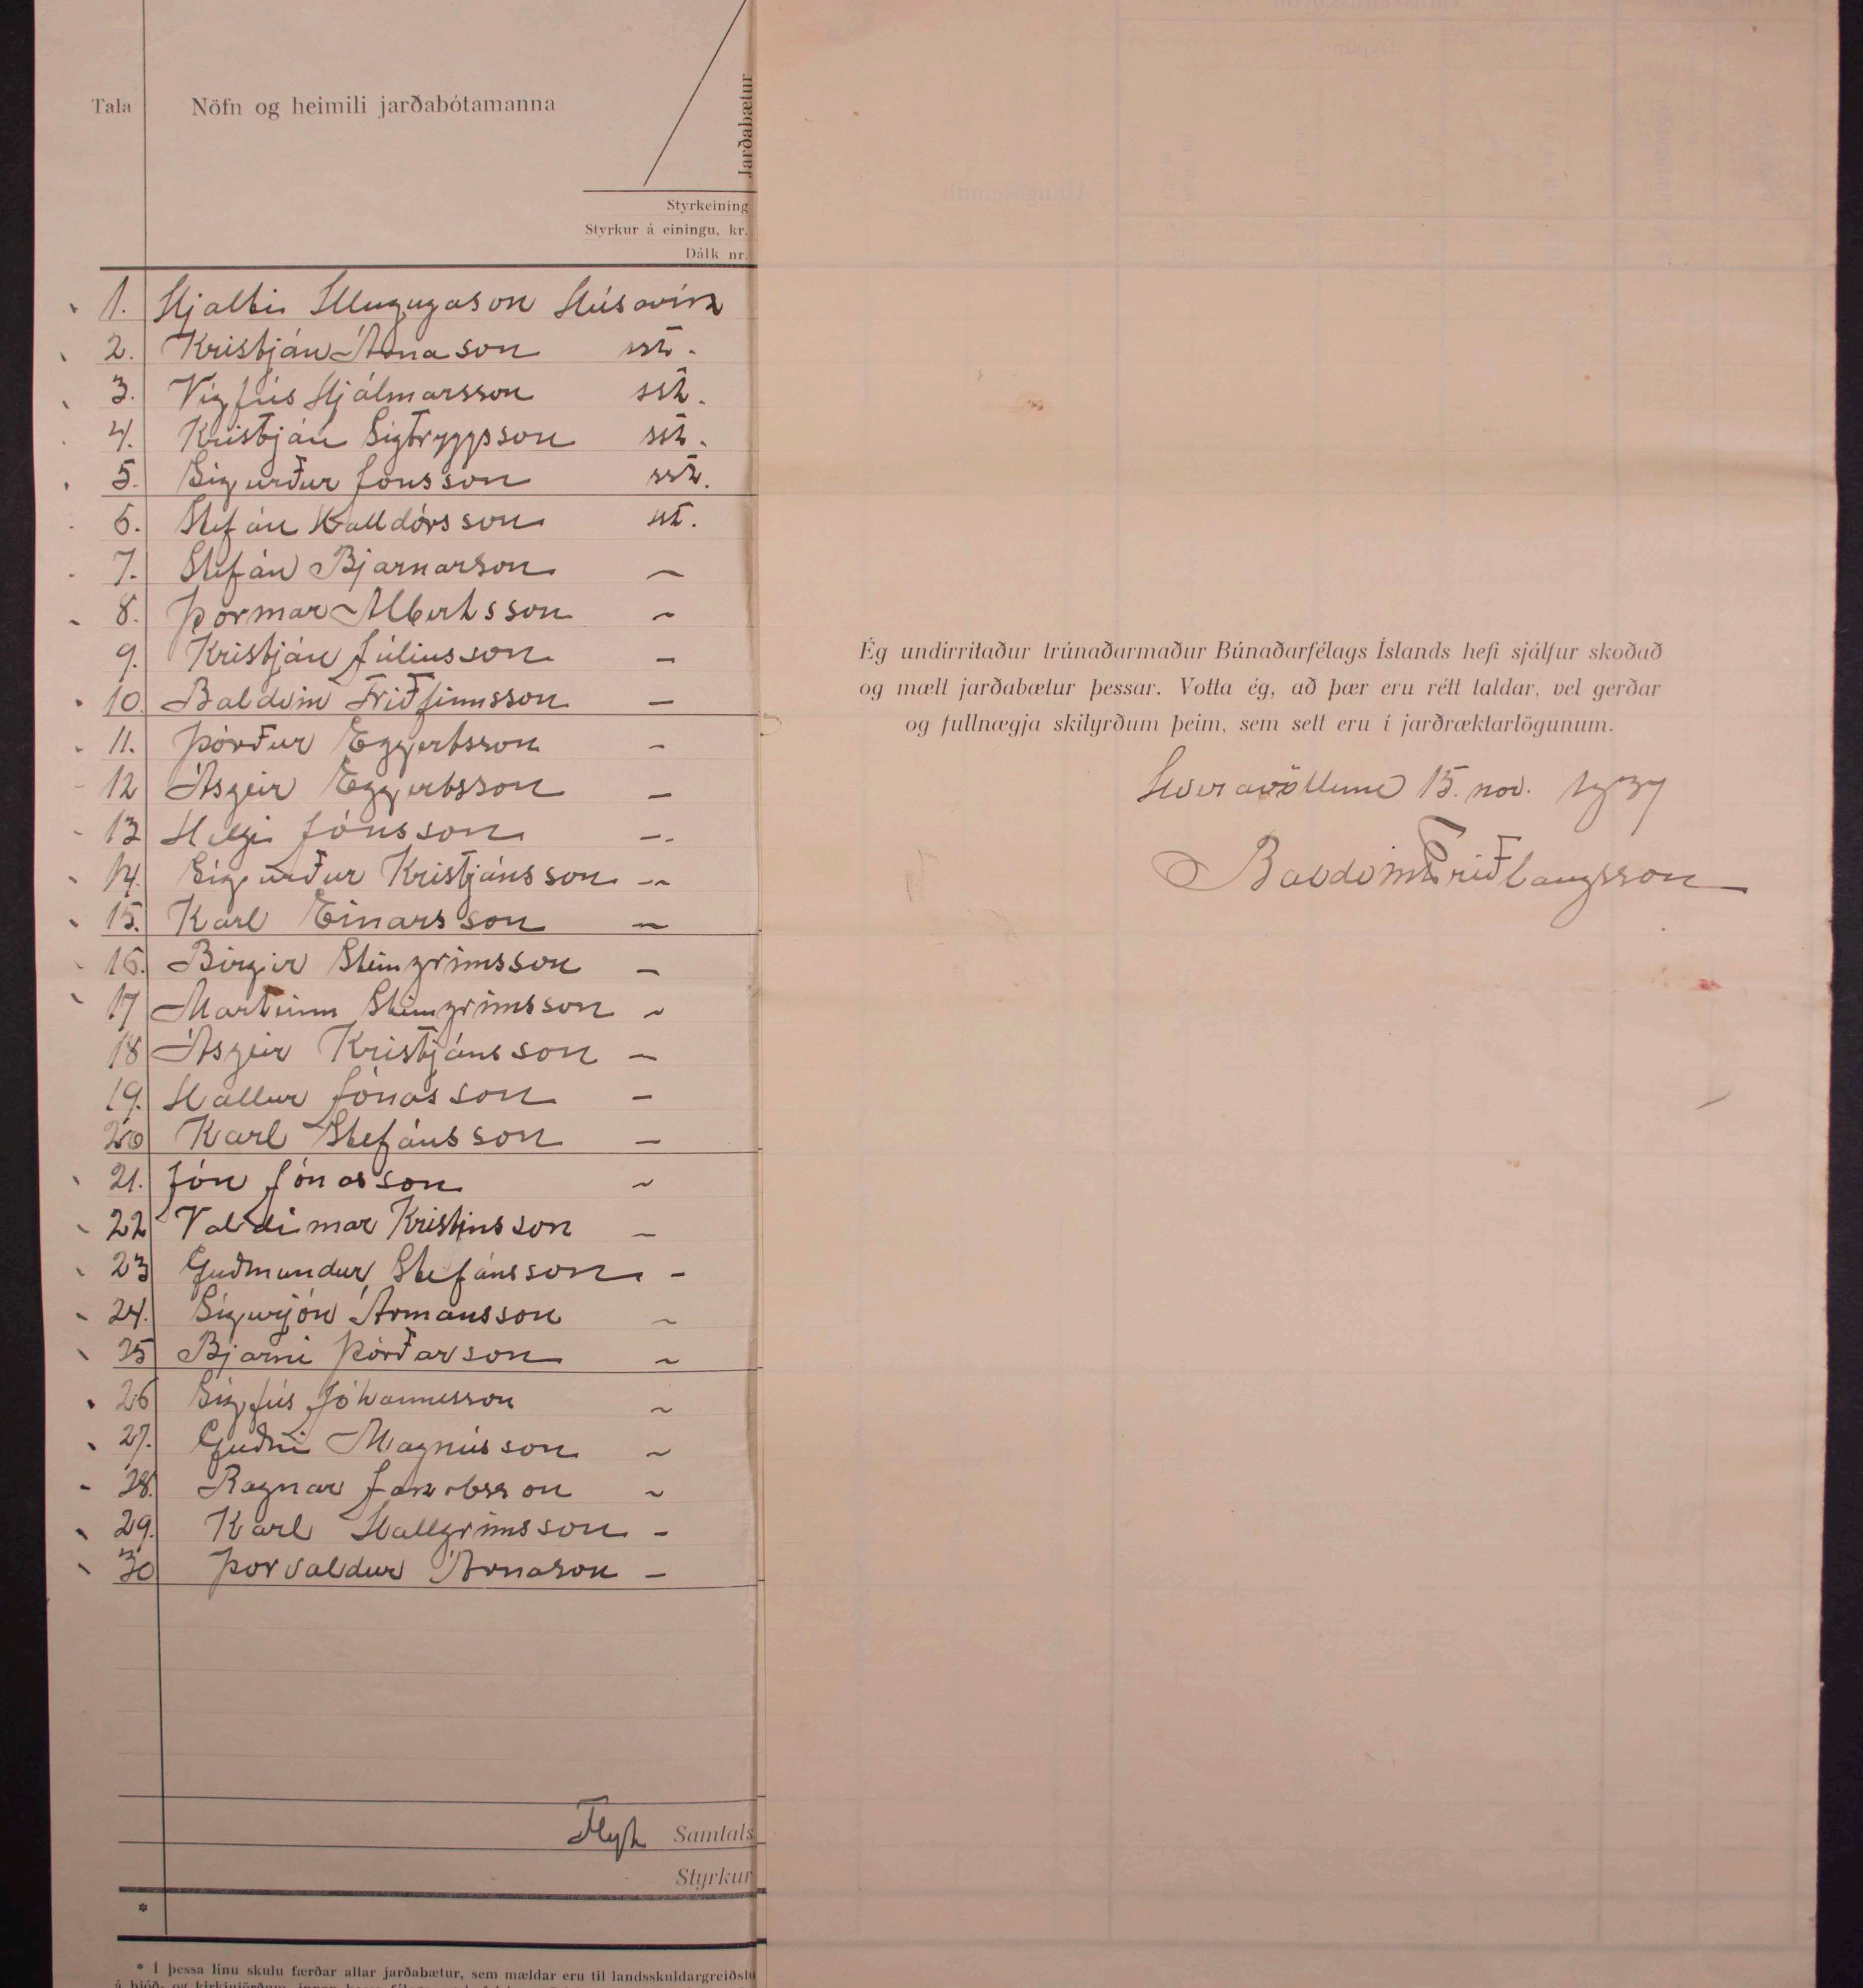 Tala
Nöfn og heimili jarðabótamanna
Jarðabætur
Styrkeining
Styrkur á einingu, kr.
Dálk nr.
1. Hjalti Illugason Húsavík
2. Kristján Árnason sst.
3. Vigfús Hjálmarsson sst.
4. Kristján Sigtryggsson sst.
5. Sigurður Jónsson sst.
6. Stefán Halldórsson st.
7. Stefán Bjarnarson ~
8. Þormar Albertsson ~
9. Kristján Júlíusson –
10. Baldvin Friðfinnsson –
11. Þórður Eggertsson –
12 Ásgeir Eggertsson –
13 Helgi Jónsson –.
14. Sigurður Kristjánsson –
15. Karl Einarsson –
16. Birgir Steingrímsson –
17 Marteinn Steingrímsson ~
18 Ásgeir Kristjánsson –
19. Hallur Jónasson –
20 Karl Stefánsson –
21. Jón Jónasson ~
22 Valdimar Kristinsson –
23 Guðmundur Stefánsson –
24. Sigurjón Ármansson ~
25 Bjarni Þórðarson ~
26 Sigfús Jóhannesson ~
27. Guðni Magnússon ~
28. Ragnar Jakobsson ~
29. Karl Hallgrímsson –
30 Þorvaldur Árnason –
Flyt Samtals
Styrkur
*
* Í þessa línu skulu færðar allar jarðabætur, sem mældar eru til landsskuldargreiðslu
Ég undirritaður trúnaðarmaður Búnaðarfélags Íslands hefi sjálfur skoðað
og mælt jarðabætur þessar. Votta ég, að þær eru rétt taldar, vel gerðar
og fullnægja skilyrðum þeim, sem sett eru í jarðræktarlögunum.
Hveravöllum 15. nov. 1937
Baldvin Friðlaugsson